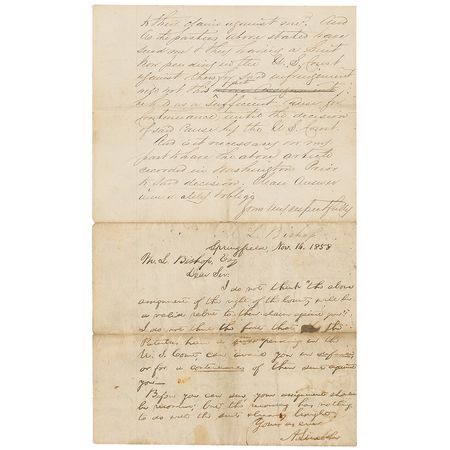 to their claim against me? And
As the parties above stated have
sued me & they having a suit
now pending in the U.S. Court
against others for said infringement
will not this fact
as a sufficient cause for
continuance until the decision
of said cause by the U.S. Court.
And is it necessary on my
part to have the above article
recorded in Washington Prior
to said decision. Please Answer
immediately & oblige
Yours very respectfully
L. Bishop
Springfield, Nov. 16. 1858
M. L. Bishop, Esq
Dear Sir.
I do not think the above
assignment of the right of the County will be
a valid release to their claim against you.
I do not think the fact that the
Patentees have a suit pending in the
U.S. Court, can avail you in defence,
or for a continuance of their suit against
you—
Before you can use your assignment it should
be recorded; but the recording has nothing
to do with the suit already brought
Yours as ever
A. Lincoln